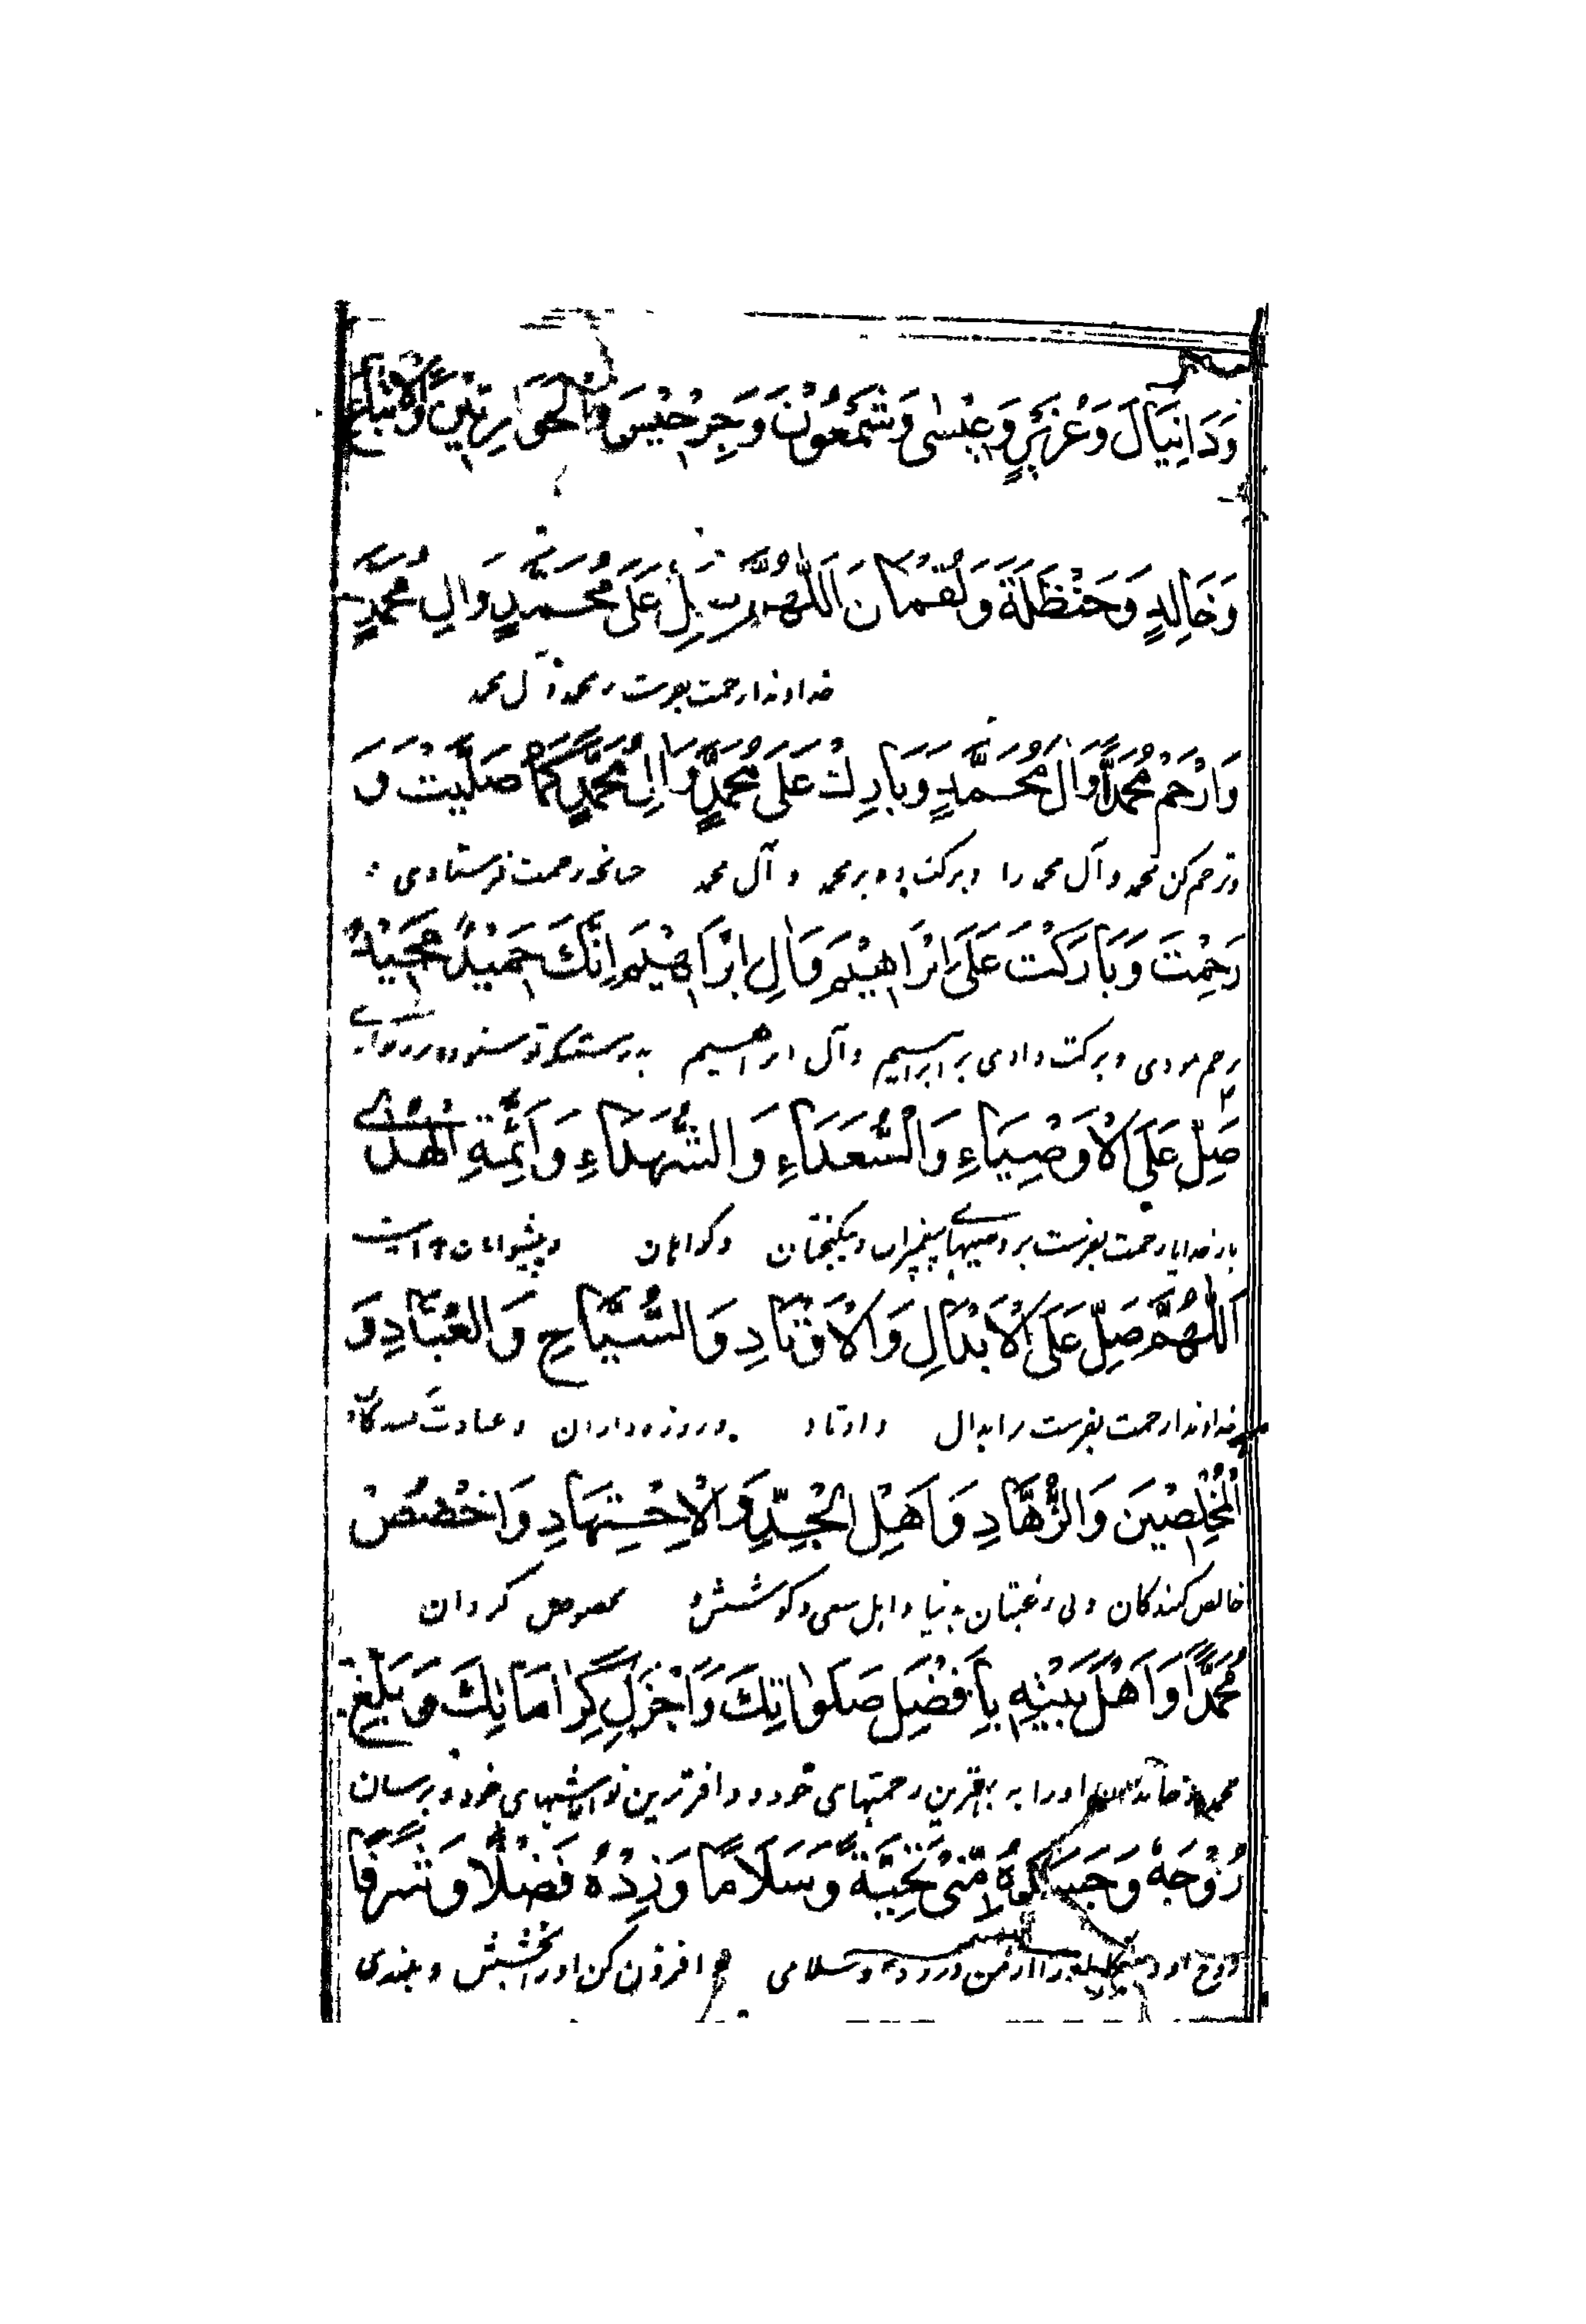 وَدَانِيَالَ وَعُزَيْرٍ وَعِيْسٰى وَشَمْعُوْنَ وَجِرْجِيْسَ وَالْحَوَارِيِّيْنَ وَالْاَتْبَاعِ
وَخَالِدٍ وَحَنْظَلَةَ وَلُقْمَانَ اَللّٰهُمَّ صَلِّ عَلٰى مُحَمَّدٍ وَاٰلِ مُحَمَّدٍ
خداوندا رحمت بفرست بر محمد و آل محمد
وَارْحَمْ مُحَمَّدًا وَاٰلَ مُحَمَّدٍ وَبَارِكْ عَلٰى مُحَمَّدٍ وَاٰلِ مُحَمَّدٍ كَمَا صَلَّيْتَ وَ
و ترحم کن محمد و آل محمد را و برکت ده بر محمد و آل محمد چنانچه رحمت فرستادی
رَحِمْتَ وَبَارَكْتَ عَلٰى اِبْرَاهِيْمَ وَاٰلِ اِبْرَاهِيْمَ اِنَّكَ حَمِيْدٌ مَجِيْدٌ
رحم نمودی و برکت دادی بر ابراهیم و آل ابراهیم بدرستیکه تو ستوده
صَلِّ عَلَى الْاَوْصِيَاءِ وَالسُّعَدَاءِ وَالشُّهَدَاءِ وَاَئِمَّةِ الْهُدٰى
بار خدایا رحمت بفرست بر وصیهای پیغمبران و نیکبختان و گواهان و پیشوایان هدایت
اَللّٰهُمَّ صَلِّ عَلَى الْاَبْدَالِ وَالْاَوْتَادِ وَالسُّيَّاحِ وَالْعُبَّادِ وَ
خداوندا رحمت بفرست بر ابدال و اوتاد و روزه داران و عبادت کنندگان
الْمُخْلِصِيْنَ وَالزُّهَّادِ وَاَهْلِ الْجِدِّ وَالْاِجْتِهَادِ وَاخْصُصْ
خالص کنندگان و بی رغبتان بدنیا و اهل سعی و کوشش و مخصوص گردان
مُحَمَّدًا وَاَهْلَ بَيْتِهٖ بِاَفْضَلِ صَلَوَاتِكَ وَاَجْزَلِ كَرَامَاتِكَ وَبَلِّغْ
محمد و اورا به بهترین رحمتهای خود و وافرترین نوازشهای خود و برسان
رُوْحَهٗ وَجَسَدَهٗ مِنِّىْ تَحِيَّةً وَسَلَامًا وَزِدْهُ فَضْلًا وَشَرَفًا
روح او از من درود و سلامی و افزون کن اورا بخشش و بلندی